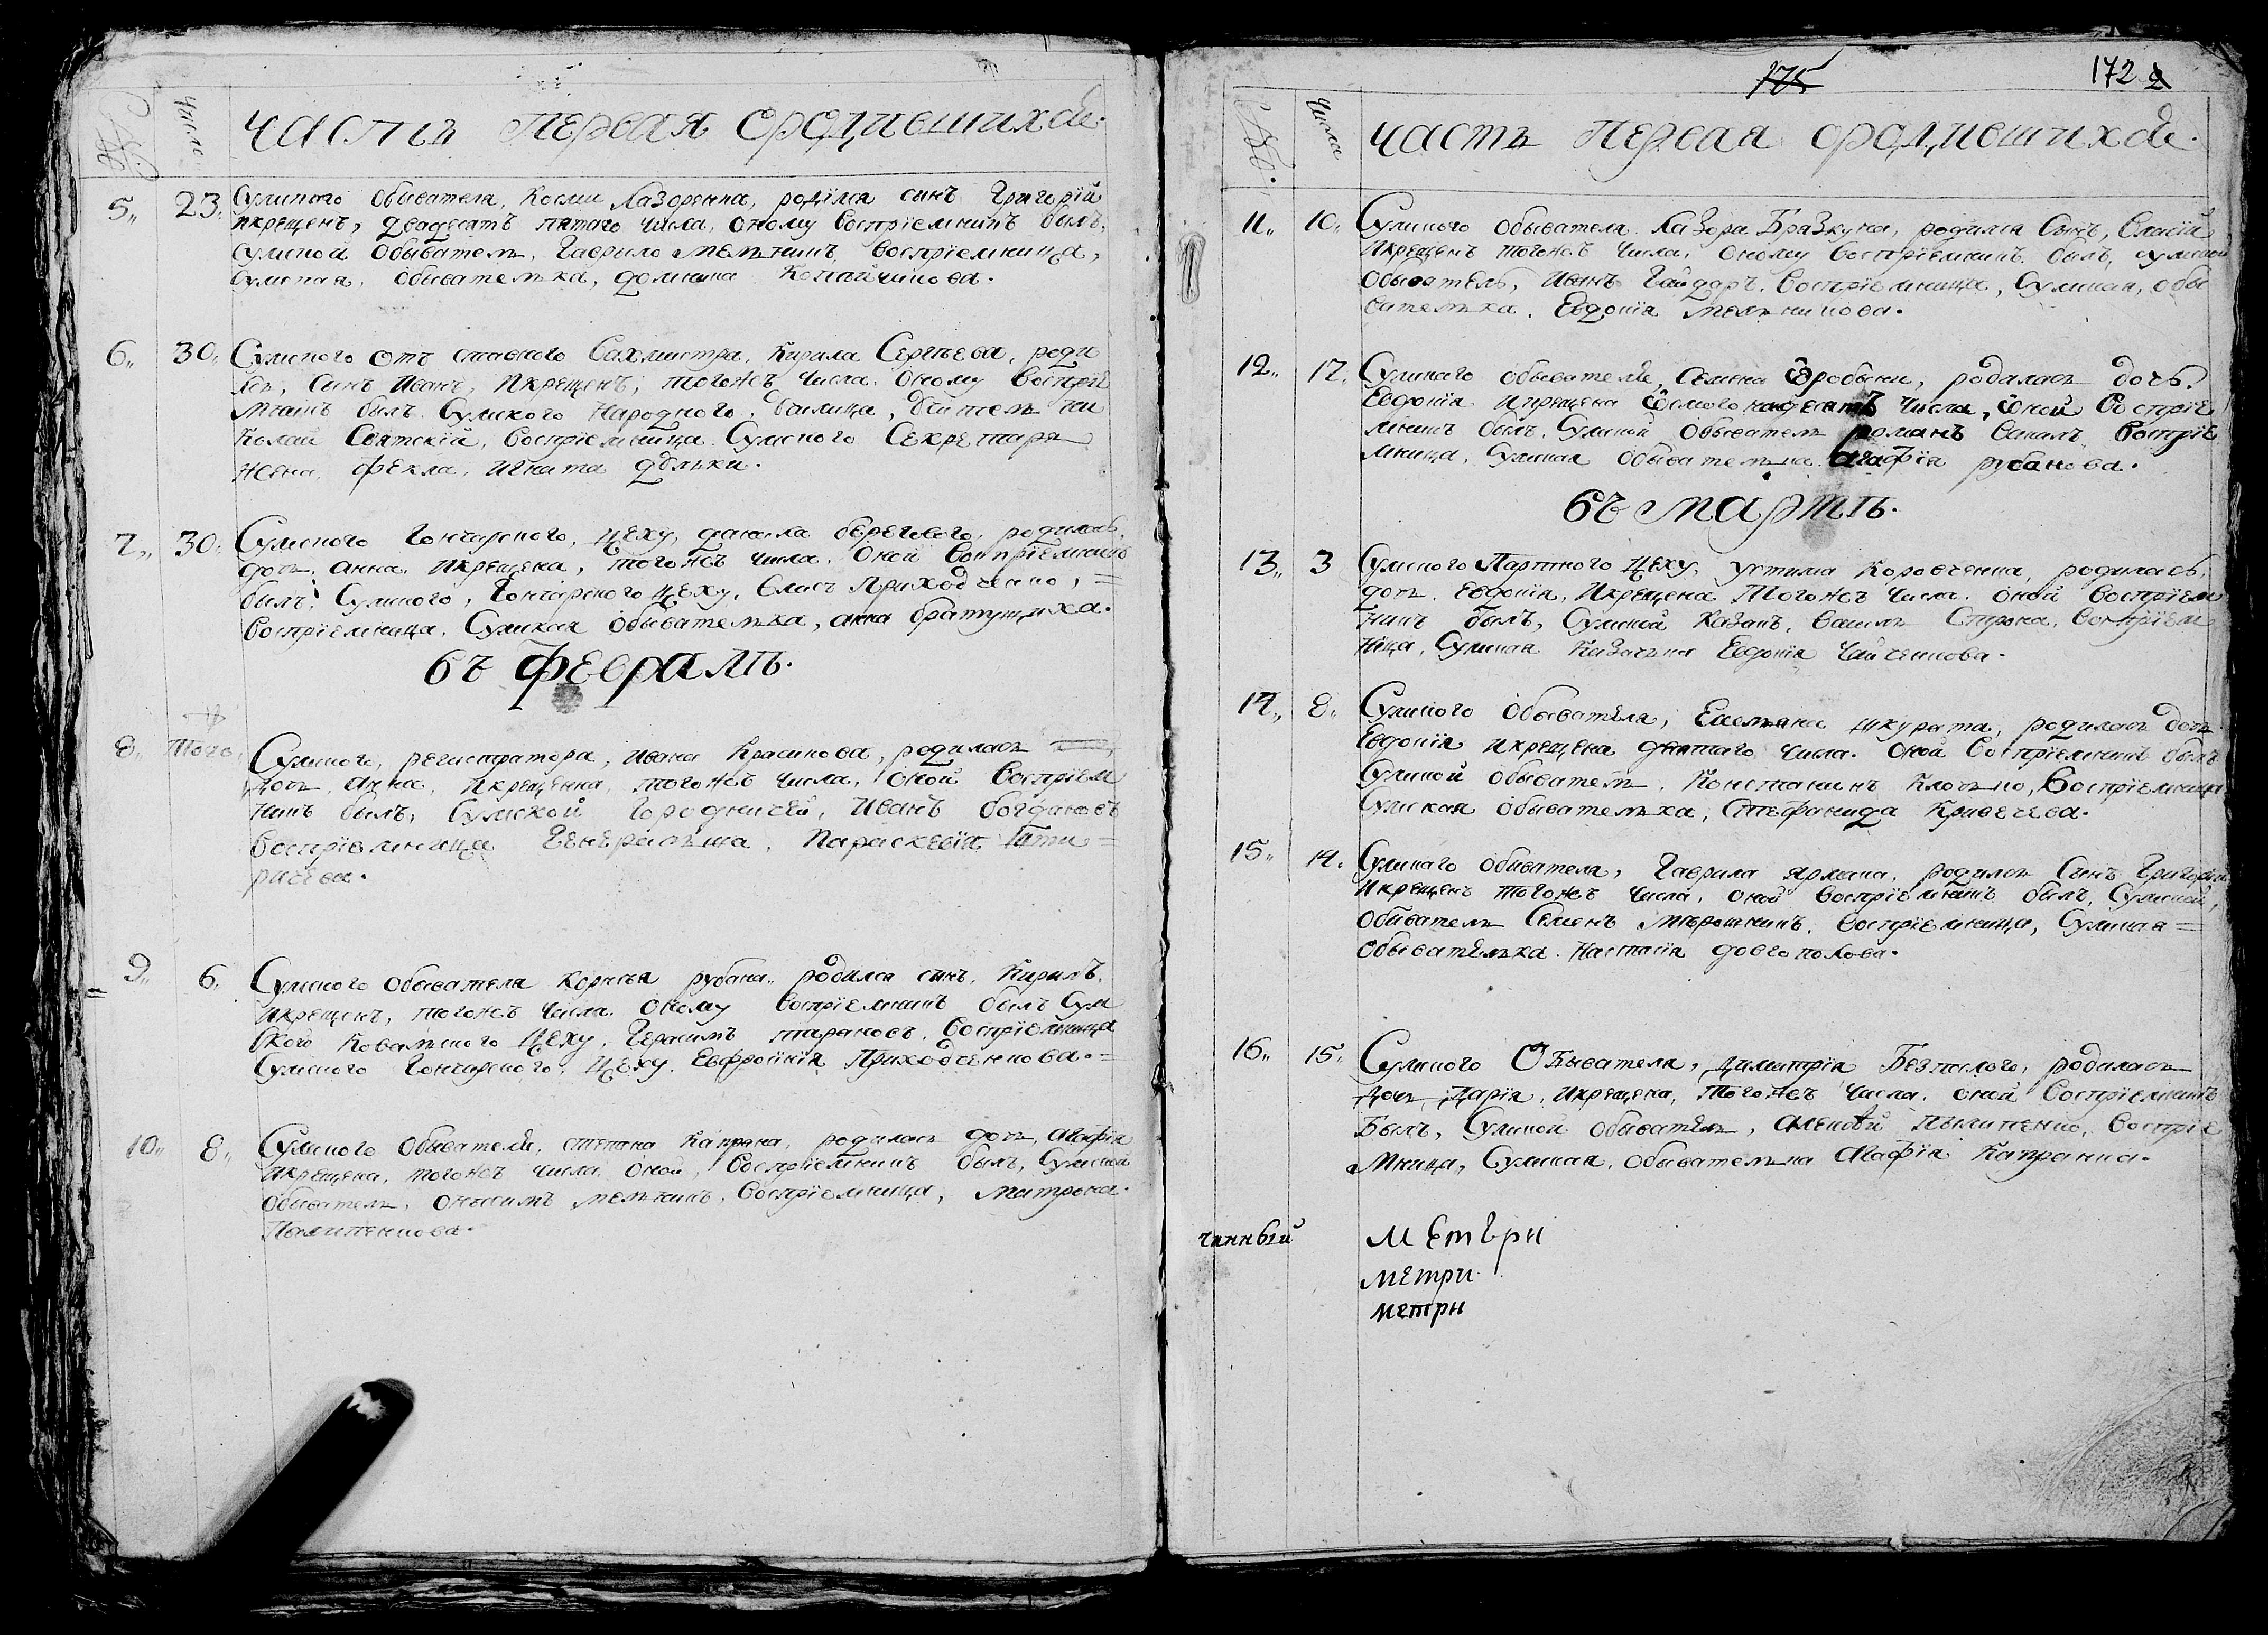 Число часть первая ородившихся.
5„ 23„ Сумского обывателя, Косми Лазоренка, родїлся синъ Григорїй
икрещенъ, двадесятъ пятаго числа, оному воспрїемникъ былъ,
сумской обыватель, Гаврило мельникъ, воспрїемница,
Сумская, обывателька, домникїа
6„ 30„ Сумского отъ ставного Вахмистра, Кирила Сергѣева, роди
лся, Синъ Иванъ, Икрещенъ, тогожъ числа. оному воспрїе
мникъ былъ Сумского Народного, училища, учитель Ни
колай Святскїй, воспрїемница Сумского Секретаря
жена, Фекла, Игната
7„ 30„ Сумского Гончарского, цеху, данила берегового, родилась,
дочь, анна. Икрещена, тогожъ числа. Оной воспрїемникъ
былъ, Сумского, Гончарского цеху, Власъ Приходченко, =
воспрїемница, Сумская обывателька, анна братущиха.
въ Февралѣ.
8„ Того„ Сумского, регистратора, Ивана Красикова, родилась
дочь, Анна, Икрещенна, тогожъ числа, оной воспрїем
никъ былъ, Сумской Городничей, Иванъ богдановъ
воспрїемница Генеральша, Параскевїа
рычева.
9„ 6„ Сумского обывателя Корнѣя рубана, родился синъ, Кирилъ,
Икрещенъ, тогожъ числа. оному воспрїемникъ былъ Сум
ского Ковальского цеху, Герасимъ тарановъ, воспрїемница
Сумского Гончарского, цеху Евфросинїя Приходченкова. =
10„ 8„ Сумского обывателя, степана Капрана, родилась дочь, Агафїя
Икрещена, тогожъ числа. оной, воспрїемникъ былъ, Сумской
обыватель, онысимъ мельникъ, воспрїемница, матрона
Пилипенкова.
175 172
Число часть первая ородившихся.
11„ 10„ Сумского обывателя Лазора Бразкуна, родился Сынъ, Власїй
Икрещенъ тогожъ числа. оному воспрїемникъ былъ, сумской
обыватель, Иванъ Гайдаръ, воспрїемница, Сумская, обы
вателька, Евдокїя мельникова.
12„ 17„ Сумскаго обывателя, Семена Оробына, родилась дочь.
Евдокїя икрещена осмогонадесять числа, оной воспрїе
мникъ былъ, Сумский обыватель романъ воспрїе
мница, Сумская обывателька агафїя рубанова.
въ мартѣ.
13„ 3 Сумского Партного Цеху, Устима Коровченка, родилась,
дочь, Евдокїя, Икрещена. тогожъ числа. оной воспрїем
никъ былъ, Сумской Казакъ, Василь Строка, воспрїем
ница, Сумская Казачка Евдокїя Чайченкова.
14„ 8„ Сумского обывателя, Емельяна шкурата, родилась дочь
Евдокїя икрещена девятаго числа. оной воспрїемникъ былъ
Сумской обыватель, Константинъ Клочко, воспрїемница
Сумская обывателька, Стефанида Кривчева.
15„ 14„ Сумскаго обывателя, Гаврила ярмака, родился Синъ Григорїй
Икрещенъ тогожъ числа, оной воспрїемникъ былъ, Сумской,
обыватель Семенъ мѣрошникъ, воспрїемница, Сумская =
обывателька. Настасїя довгополова.
16„ 15„ Сумского Обывателя, димитрїя Безпалого, родилась
дочь, Дарїя, икрещена, тогожъ числа. оной воспрїемникъ
былъ, Сумской обыватель, Алексѣй Пилипенко, воспрїе
мница, Сумская, обывателька Агафїя Капранка.
чинный метри
метри
метри